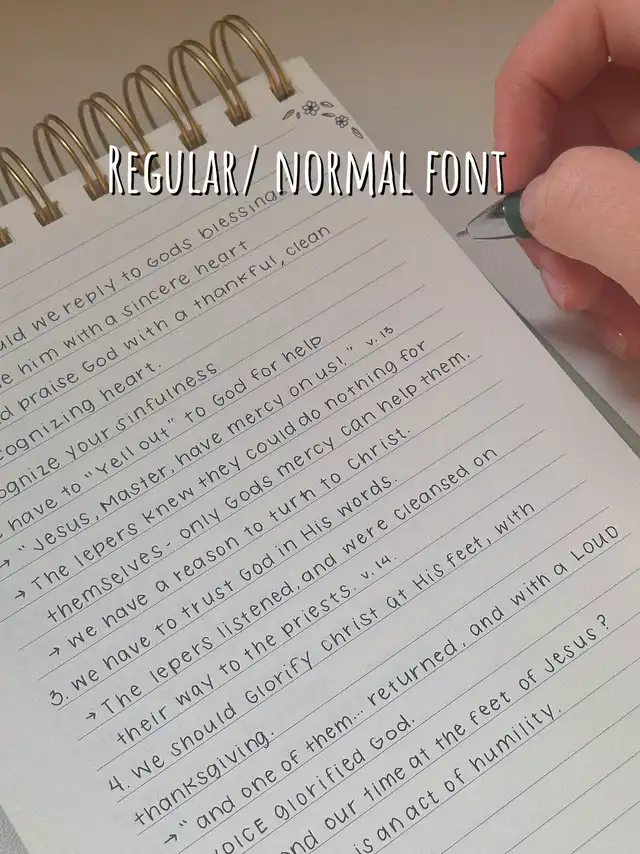 REGULAR/ NORMAL FONT
we reply to Gods blessing
him with a sincere heart
praise God with a thankful, clean
heart.
your sinfulness
have to "Yell out" to God for help
→ "Jesus, Master, have mercy on us!" v. 13
→ The lepers knew they could do nothing for
themselves- only Gods mercy can help them.
→ we have a reason to turn to Christ.
3. we have to trust God in His words.
→ The lepers listened, and were cleansed on
their way to the priests. v. 14.
4. we should Glorify Christ at His feet, with
thanksgiving.
→ " and one of them... returned, and with a LOUD
glorified God.
our time at the feet of Jesus?
is an act of humility.